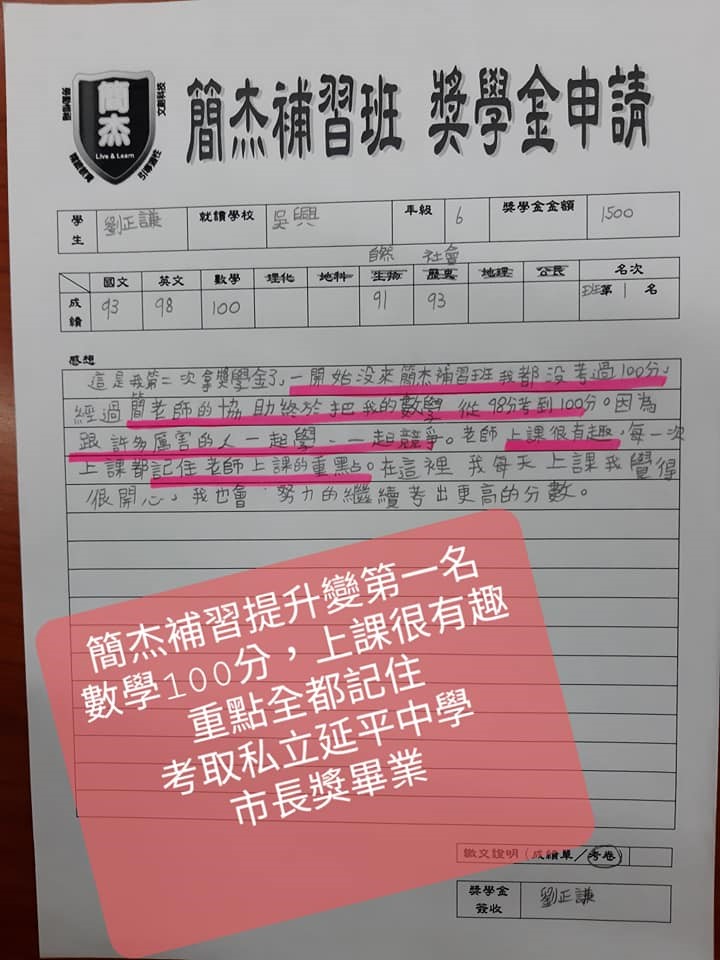 簡杰
Live & Learn
簡杰補習班 獎學金申請
學生 劉正謙 就讀學校 吳興 年級 6 獎學金金額 1500
自然 社會
國文 英文 數學 理化 地科 生物 歷史 地理 公民 名次
成績 93 98 100 91 93 班第 1 名
感想
這是我第二次拿獎學金了,一開始沒來簡杰補習班我都沒考過100分,
經過簡老師的協助終於把我的數學 從98分考到100分。因為
跟許多厲害的人一起學、一起競爭。老師上課很有趣,每一次
上課都記住老師上課的重點。在這裡 我每天上課我覺得
很開心,我也會 努力的繼續考出更高的分數。
簡杰補習提升變第一名
數學100分,上課很有趣
重點全都記住
考取私立延平中學
市長獎畢業
繳交證明(成績單/考卷)
獎學金簽收 劉正謙